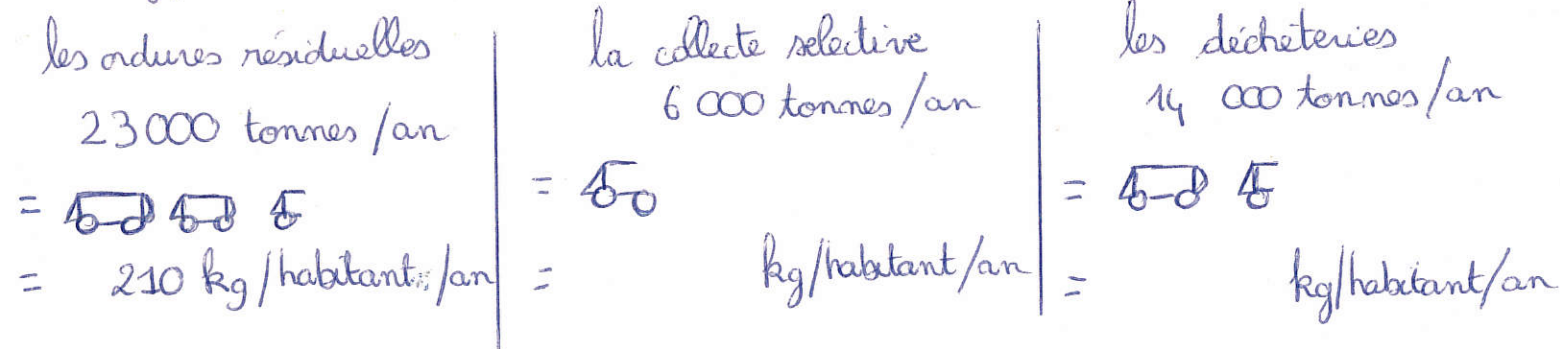 les ordures résiduelles
23000 tonnes/an
=
= 210 kg/habitant/an
la collecte selective
6 000 tonnes/an
=
= kg/habitant/an
les décheteries
14 000 tonnes/an
=
= kg/habitant/an